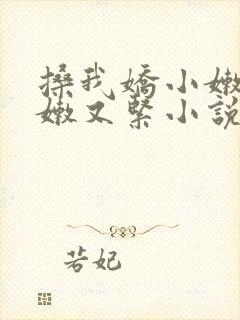 搡我嬌小嫩
嫩又緊小說
若妃